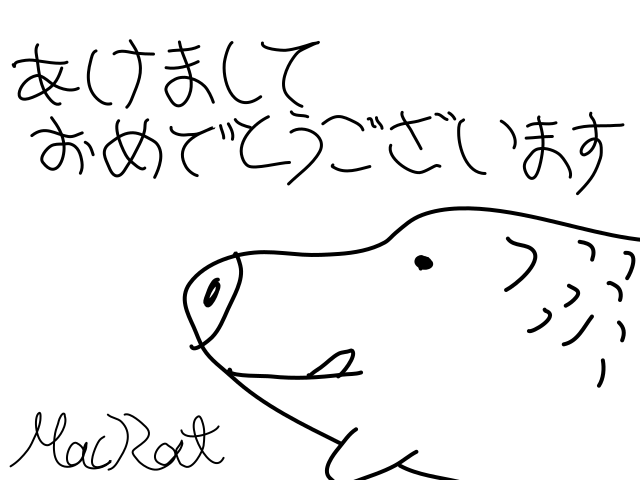 あけまして
おめでとうございます
MacRat